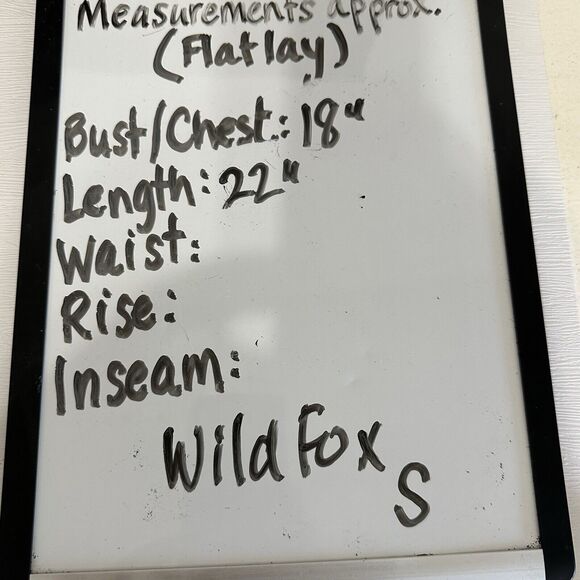 Measurements approx.
(Flatlay)
Bust/Chest: 18"
Length: 22"
Waist:
Rise:
Inseam:
Wild Fox
S